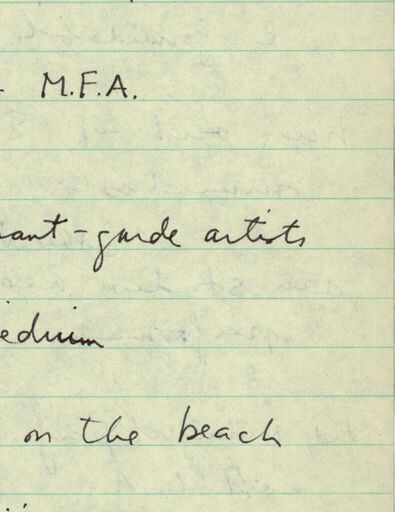 M.F.A.
ant-garde artists
edium
on the beach